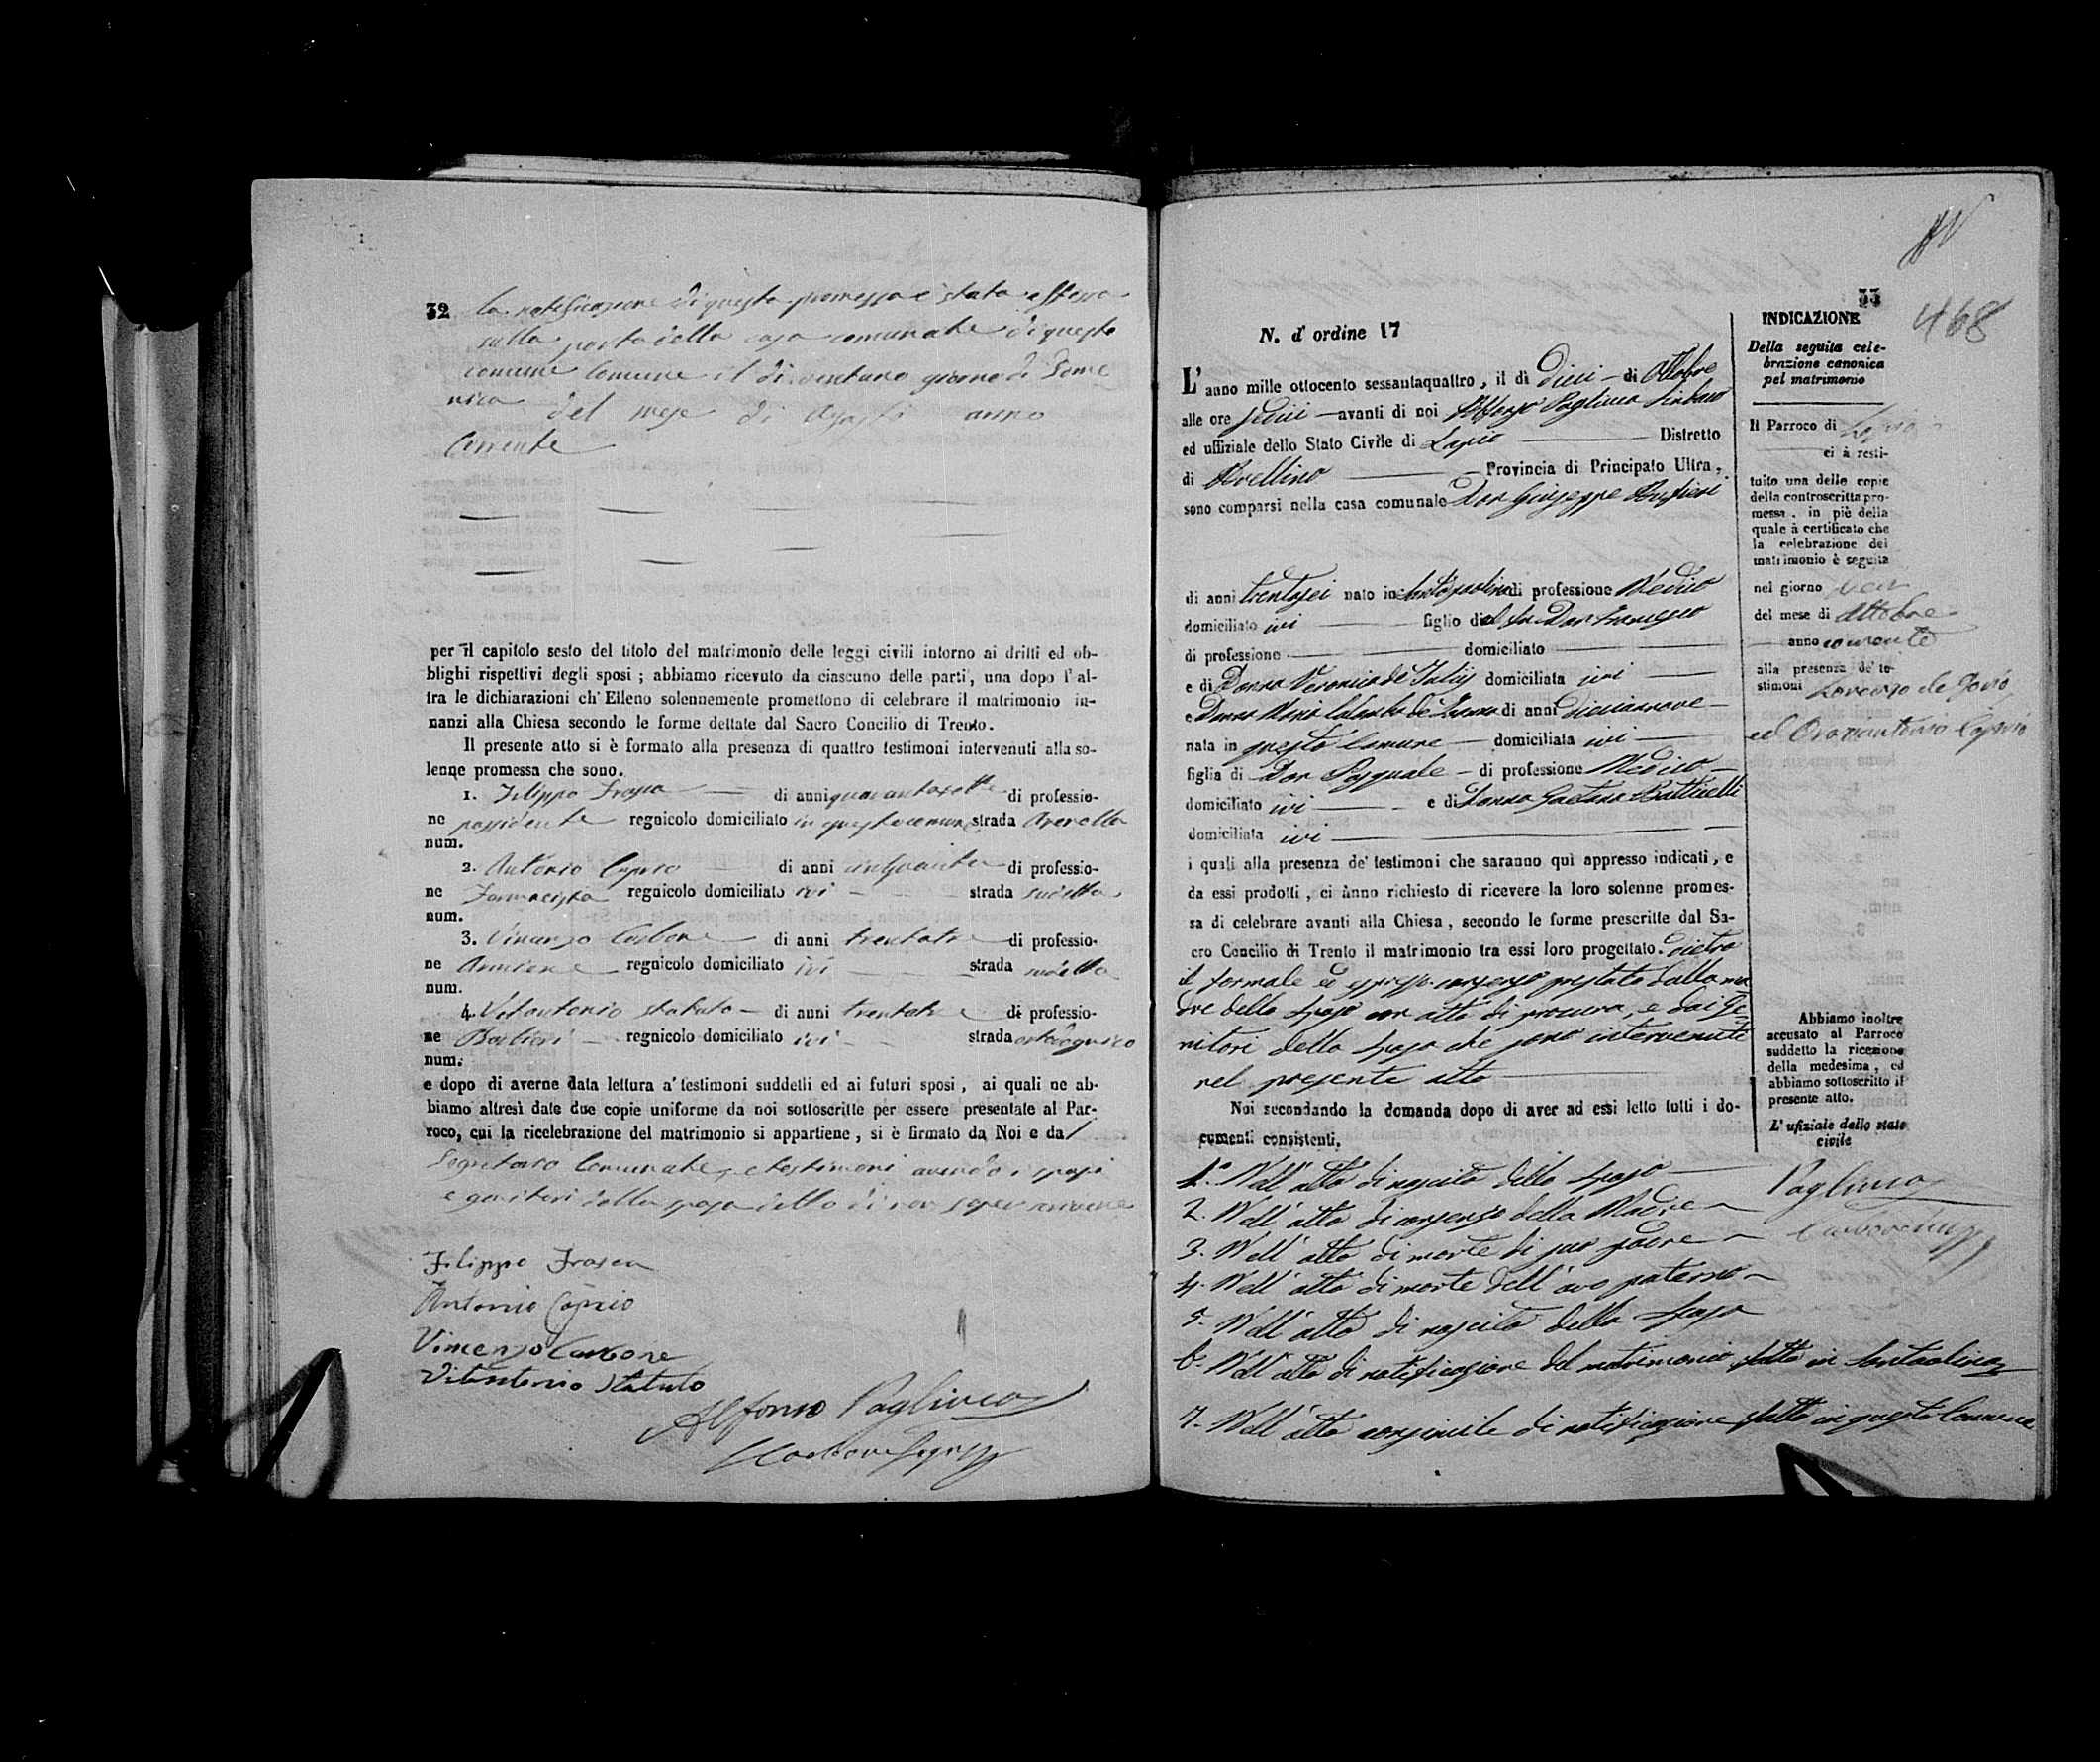 32
la notificazione di questa promessa è stata affissa
sulla porta della casa comunale di questo
comune Comune il di ventuno giorno di Dome
nica del mese di Agosto anno
Corrente
per il capitolo sesto del titolo del matrimonio delle leggi civili intorno ai dritti ed ob-
blighi rispettivi degli sposi ; abbiamo ricevuto da ciascuno delle parti, una dopo l'al-
tra le dichiarazioni ch' Elleno solennemente promettono di celebrare il matrimonio in-
nanzi alla Chiesa secondo le forme dettate dal Sacro Concilio di Trento.
Il presente atto si è formato alla presenza di quattro testimoni intervenuti alla so-
lenne promessa che sono.
1. Filippo Frasca di anni quarantasette di professio-
ne possidente regnicolo domiciliato in questo comune strada
num.
2. Antonio Caprio di anni cinquanta di professio-
ne Farmacista regnicolo domiciliato ivi strada sudetta
num.
3. Vincenzo Carbone di anni trentatre di professio-
ne regnicolo domiciliato ivi strada sudetta
num.
4. Vitantonio Statuto di anni trentatre di professio-
ne Barbieri regnicolo domiciliato ivi strada
num.
e dopo di averne data lettura a' testimoni suddetti ed ai futuri sposi, ai quali ne ab-
biamo altresì date due copie uniforme da noi sottoscritte per essere presentate al Par-
roco, cui la ricelebrazione del matrimonio si appartiene, si è firmato da Noi e da
Segretario Comunale, e testimoni avendo i sposi
e genitori della sposa detto di non saper scrivere
Filippo Frasca
Antonio Caprio
Vincenzo Carbone
Vitantonio Statuto
Alfonso Pagliuca
Carbone
33
468
N. d' ordine 17
L'anno mille ottocento sessantaquattro, il dì dieci di Ottobre
alle ore sedici avanti di noi Alfonso Pagliuca Sindaco
ed uffiziale dello Stato Civile di Lapio Distretto
di Avellino Provincia di Principato Ultra,
sono comparsi nella casa comunale Don Giuseppe
di anni trentasei nato in Santopaolina di professione Medico
domiciliato ivi figlio del fu Don Francesco
di professione domiciliato
e di Donna Veronica de Juliis domiciliata ivi
e Donna Maria Colomba de di anni diciannove
nata in questo Comune domiciliata ivi
figlia di Don Pasquale di professione Medico
domiciliato ivi e di Donna Gaetana Batticelli
domiciliata ivi
i quali alla presenza de' testimoni che saranno quì appresso indicati, e
da essi prodotti, ci ànno richiesto di ricevere la loro solenne promes-
sa di celebrare avanti alla Chiesa, secondo le forme prescritte dal Sa-
cro Concilio di Trento il matrimonio tra essi loro progettato. dietro
il formale ed espresso consenso prestato dalla ma
dre dello sposo con atto di procura, e dai Ge-
nitori della sposa che sono intervenuti
nel presente atto
Noi secondando la domanda dopo di aver ad essi letto tutti i do-
cumenti consistenti.
1.° Nell' atto di nascita dello sposo
2. Nell' atto di consenso della Madre
3. Nell' atto di morte di suo padre
4. Nell' atto di morte dell' avo paterno
5. Nell' atto di nascita della sposa
6. Nell' atto di notificazione del matrimonio fatta in Santaolina
7. Nell' atto consimile di notificazione fatta in questo Comune
INDICAZIONE
Della seguita cele-
brazione canonica
pel matrimonio
Il Parroco di Lapio
ci à resti-
tuito una delle copie
della controscritta pro-
messa, in piè della
quale à certificato che
la celebrazione del
matrimonio è seguita
nel giorno
del mese di Ottobre
anno corrente
alla presenza de' te-
stimoni Lorenzo de Jorio
ed Oronantonio Caprio
Abbiamo inoltre
accusato al Parroco
suddetto la ricezione
della medesima, ed
abbiamo sottoscritto il
presente atto.
L' ufiziale dello stato
civile
Pagliuca
Carbone